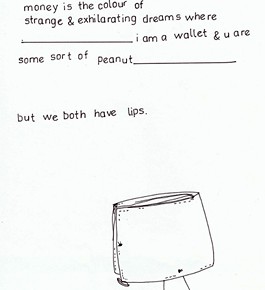 money is the colour of
strange & exhilarating dreams where
i am a wallet & u are
some sort of peanut
but we both have lips.